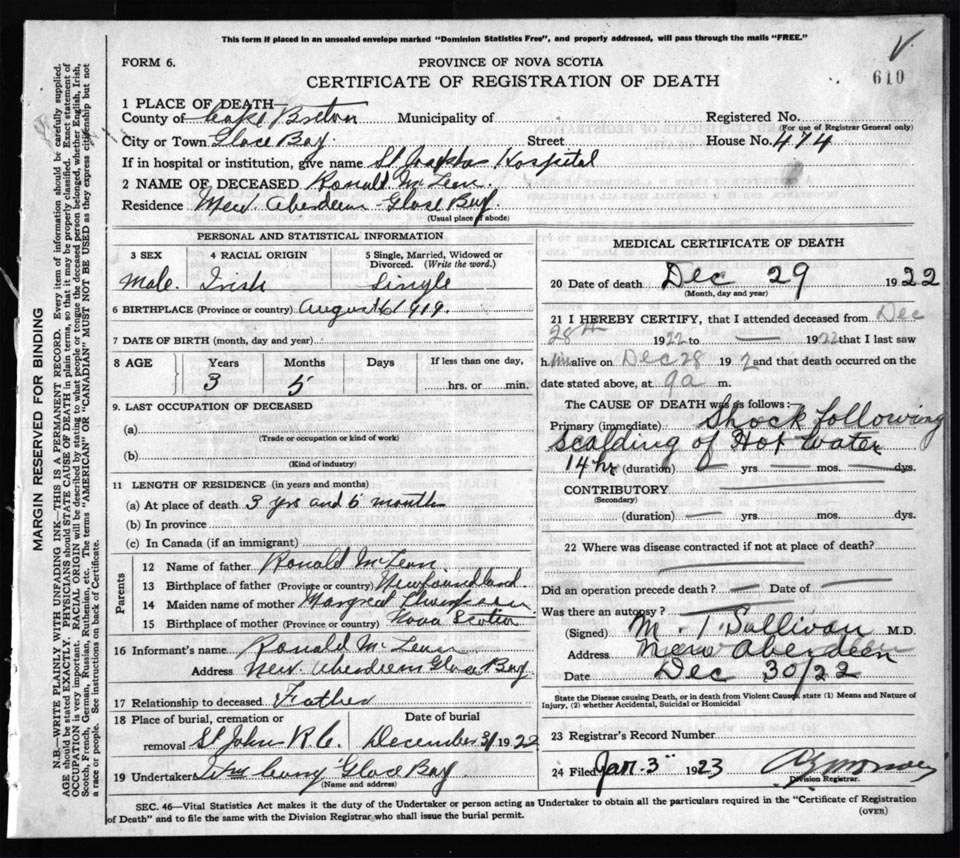 This form if placed in an unsealed envelope marked "Dominion Statistics Free", and properly addressed, will pass through the mails "FREE."
FORM 6.
PROVINCE OF NOVA SCOTIA
610
CERTIFICATE OF REGISTRATION OF DEATH
1 PLACE OF DEATH—
County of Cape Breton Municipality of Registered No.
(For use of Registrar General only)
City or Town Glace Bay Street House No. 474
If in hospital or institution, give name St Josephs Hospital
2 NAME OF DECEASED Ronald McLean
Residence New Aberdeen Glace Bay
(Usual place of abode)
PERSONAL AND STATISTICAL INFORMATION
3 SEX 4 RACIAL ORIGIN 5 Single, Married, Widowed or Divorced. (Write the word.)
Male. Irish Single
6 BIRTHPLACE (Province or country) August 6 1919.
7 DATE OF BIRTH (month, day and year)
8 AGE Years Months Days If less than one day,
3 5 hrs. or min.
9. LAST OCCUPATION OF DECEASED
(a)
(Trade or occupation or kind of work)
(b)
(Kind of industry)
11 LENGTH OF RESIDENCE (in years and months)
(a) At place of death 3 yrs and 5 month
(b) In province
(c) In Canada (if an immigrant)
Parents
12 Name of father Ronald McLean
13 Birthplace of father (Province or country) Newfoundland
14 Maiden name of mother Margred
15 Birthplace of mother (Province or country) Nova Scotia
16 Informant's name Ronald McLean
Address New Aberdeen Glace Bay
17 Relationship to deceased Father
18 Place of burial, cremation or removal St John R.C.
Date of burial December 31 1922
19 Undertaker Glace Bay
(Name and address)
MEDICAL CERTIFICATE OF DEATH
20 Date of death Dec 29 1922
(Month, day and year)
21 I HEREBY CERTIFY, that I attended deceased from Dec
28th 1922 to — 1922 that I last saw
h im alive on Dec 28 192 and that death occurred on
date stated above, at 9 a m.
The CAUSE OF DEATH was as follows:—
Primary (immediate) Shock following
scalding of Hot water
14 hr (duration) — yrs — mos. — dys.
CONTRIBUTORY
(Secondary)
(duration) — yrs. mos. dys.
22 Where was disease contracted if not at place of death?
Did an operation precede death? — Date of
Was there an autopsy?
(Signed) M. T. Sullivan M.D.
Address New Aberdeen
Date Dec 30/22
State the Disease causing Death, or in death from Violent Causes, state (1) Means and Nature of
Injury, (2) whether Accidental, Suicidal or Homicidal
23 Registrar's Record Number
24 Filed Jan 3 1923
Division Registrar.
SEC. 46—Vital Statistics Act makes it the duty of the Undertaker or person acting as Undertaker to obtain all the particulars required in the "Certificate of Registration
of Death" and to file the same with the Division Registrar who shall issue the burial permit.
(OVER)
MARGIN RESERVED FOR BINDING
N.B.—WRITE PLAINLY WITH UNFADING INK—THIS IS A PERMANENT RECORD. Every item of information should be carefully supplied.
AGE should be stated EXACTLY. PHYSICIANS should STATE CAUSE OF DEATH in plain terms, so that it may be properly classified. Exact statement of
OCCUPATION is very important. RACIAL ORIGIN will be described by stating to what people or tongue the deceased person belonged, whether English, Irish,
Scotch, French, German, Russian, Ruthenian, etc. The terms "AMERICAN" or "CANADIAN" MUST NOT BE USED as they express citizenship but not
a race or people. See instructions on back of Certificate.